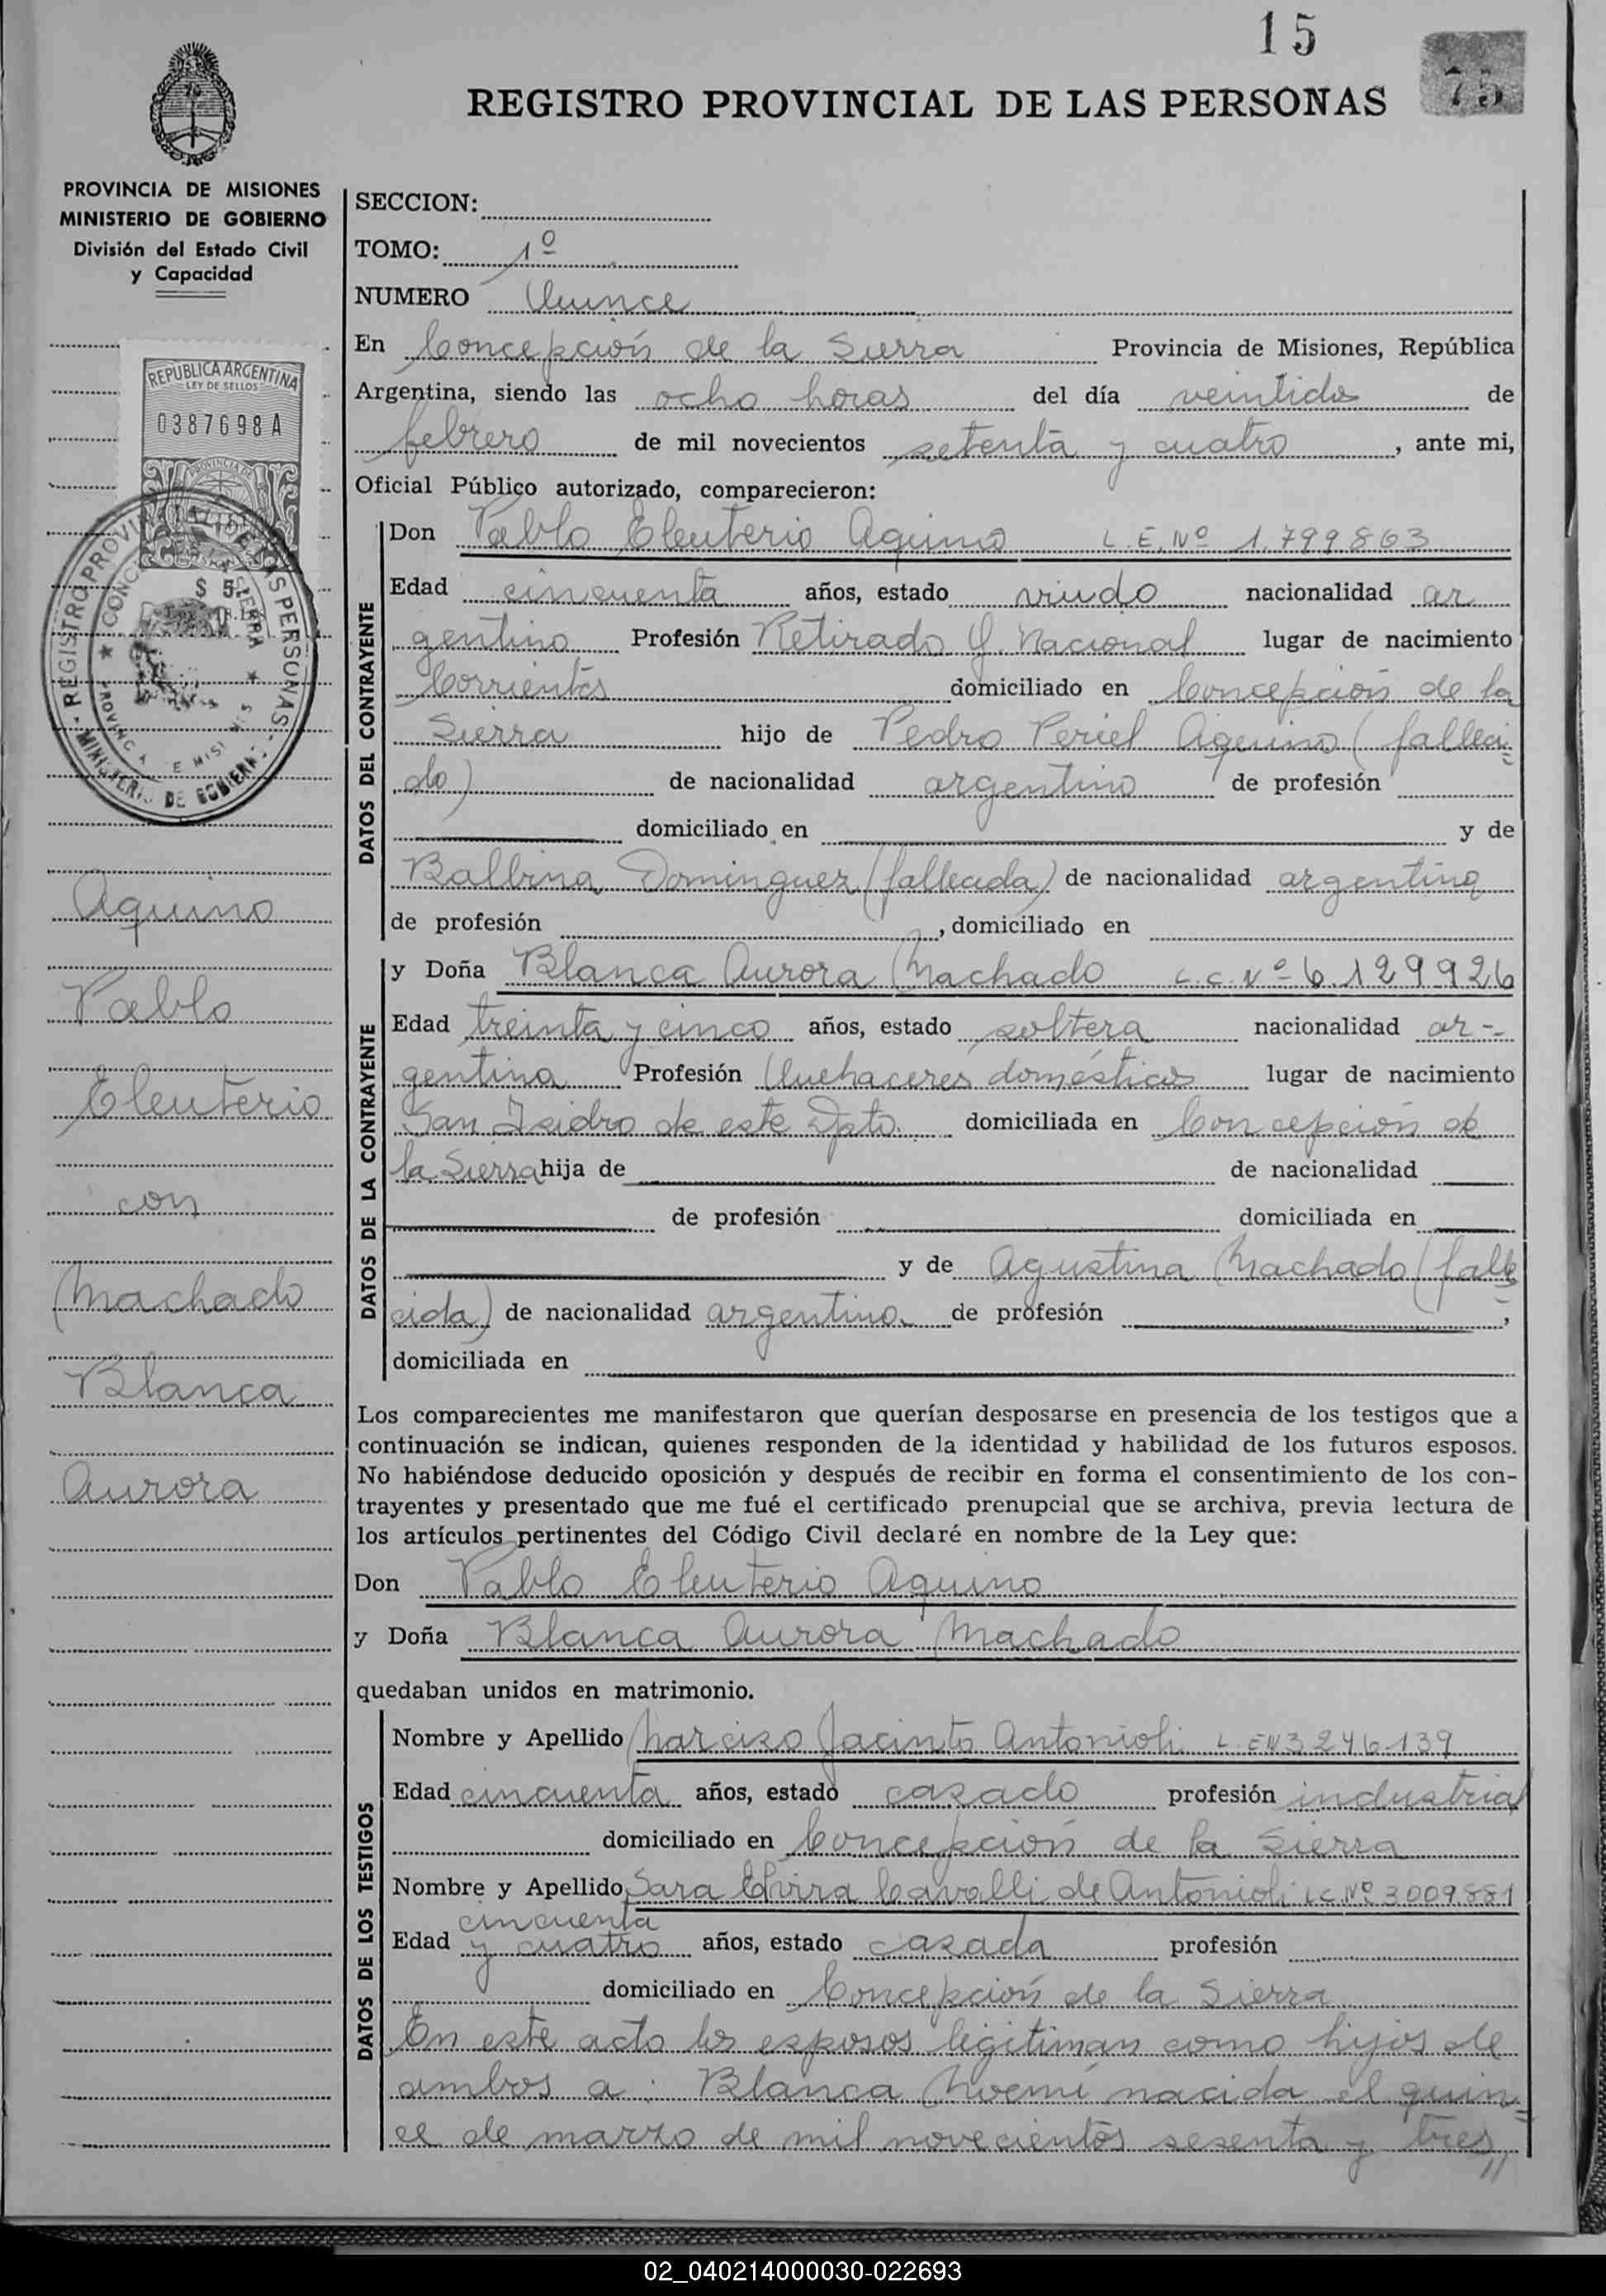 15
75
REGISTRO PROVINCIAL DE LAS PERSONAS
PROVINCIA DE MISIONES
MINISTERIO DE GOBIERNO
División del Estado Civil
y Capacidad
REPUBLICA ARGENTINA
LEY DE SELLOS
0387698 A
$ 5.
REGISTRO PROVINCIAL DE LAS PERSONAS
MINISTERIO DE GOBIERNO
Aquino
Pablo
Eleuterio
con
Machado
Blanca
Aurora
SECCION:
TOMO: 1º
NUMERO Quince
En Concepción de la Sierra Provincia de Misiones, República
Argentina, siendo las ocho horas del día veintidos de
febrero de mil novecientos setenta y cuatro, ante mi,
Oficial Público autorizado, comparecieron:
DATOS DEL CONTRAYENTE
Don Pablo Eleuterio Aquino L.E. Nº 1.799863
Edad cincuenta años, estado viudo nacionalidad ar
gentino Profesión Retirado G. Nacional lugar de nacimiento
Corrientes domiciliado en Concepción de la
Sierra hijo de Pedro Aquino (falleci=
do) de nacionalidad argentino de profesión
domiciliado en y de
Balbina Dominguez (fallecida) de nacionalidad argentina
de profesión , domiciliado en
DATOS DE LA CONTRAYENTE
y Doña Blanca Aurora Machado L.C. Nº 6.129926
Edad treinta y cinco años, estado soltera nacionalidad ar-
gentina Profesión Quehaceres domésticos lugar de nacimiento
San Isidro de este Dpto. domiciliada en Concepción de
la Sierra hija de de nacionalidad
de profesión domiciliada en
y de Agustina Machado (falle
cida) de nacionalidad argentina de profesión ,
domiciliada en
Los comparecientes me manifestaron que querían desposarse en presencia de los testigos que a
continuación se indican, quienes responden de la identidad y habilidad de los futuros esposos.
No habiéndose deducido oposición y después de recibir en forma el consentimiento de los con-
trayentes y presentado que me fué el certificado prenupcial que se archiva, previa lectura de
los artículos pertinentes del Código Civil declaré en nombre de la Ley que:
Don Pablo Eleuterio Aquino
y Doña Blanca Aurora Machado
quedaban unidos en matrimonio.
DATOS DE LOS TESTIGOS
Nombre y Apellido Narciso Jacinto Antonioli L.EN 3246139
Edad cincuenta años, estado casado profesión industrial
domiciliado en Concepción de la Sierra
Nombre y Apellido Sara Elvira Cavalli de Antonioli L.C. Nº 3009881
cincuenta
Edad y cuatro años, estado casada profesión
domiciliado en Concepción de la Sierra
En este acto los esposos legitiman como hijos de
ambos a: Blanca Noemí nacida el quin=
ce de marzo de mil novecientos sesenta y tres,,
02_040214000030-022693